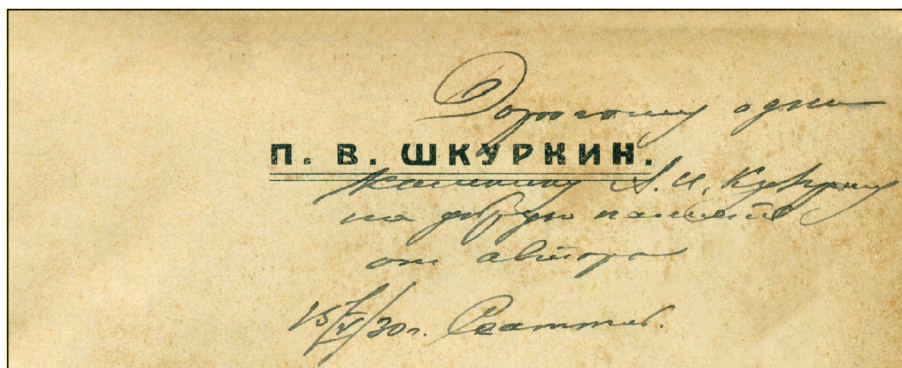 Дорогому одно-
П. В. ШКУРКИН.
кашнику А. И.
на добрую память
от автора
15/V/30 г. Сеаттль.